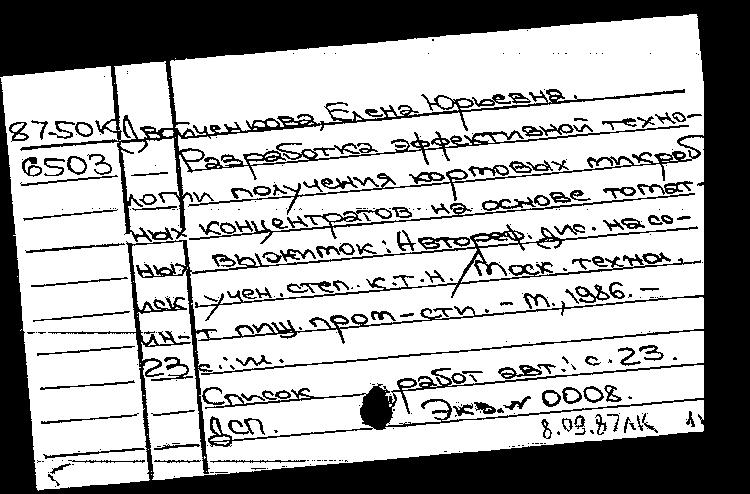 87-50К Двойченкова, Елена Юрьевна.
6503 Разработка эффективной техно-
логии получения кормовых микроб
ных концентратов на основе томат-
ных выжимок: Автореф. дис. на со-
иск. учен. степ. к.т.н. / Моск. технол.
ин-т пищ. пром-сти. - М., 1986. -
23 с.: ил.
Список работ авт.: с. 23.
ДСП. Экз. № 0008.
8.09.87 ЛК